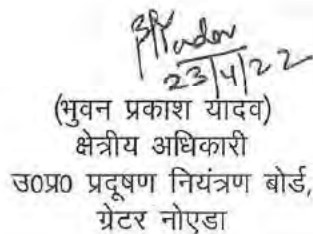 BPYadav
23/4/22
(भुवन प्रकाश यादव)
क्षेत्रीय अधिकारी
उ0प्र0 प्रदूषण नियंत्रण बोर्ड,
ग्रेटर नोएडा